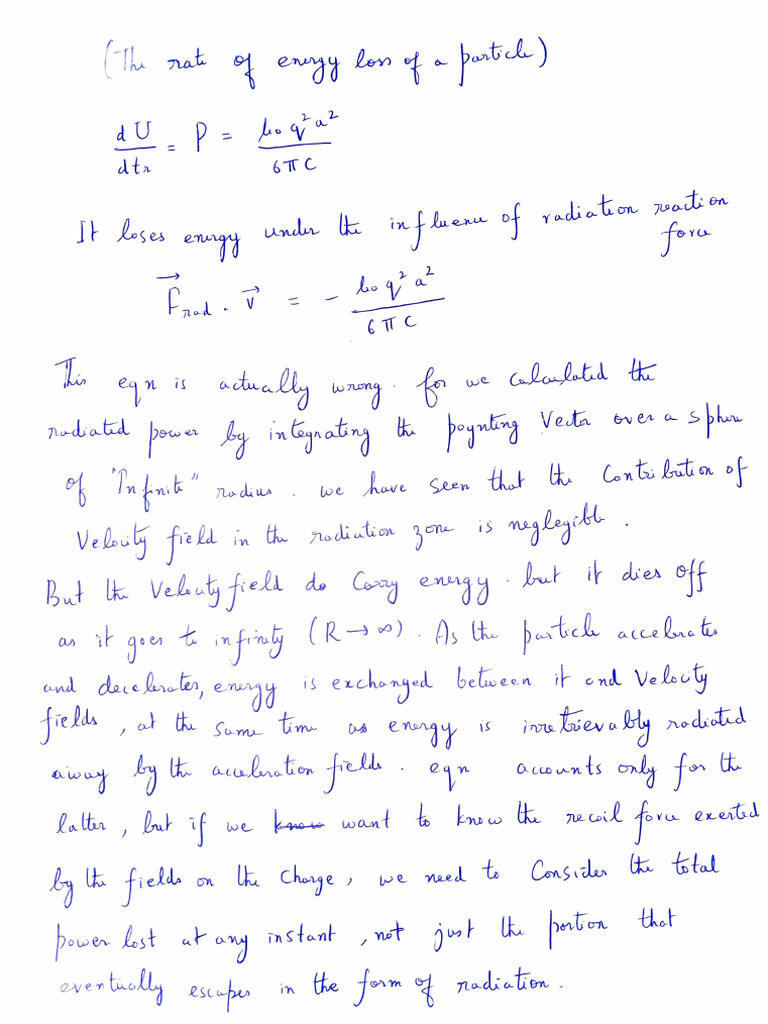 (The rate of energy loss of a particle)
dU/dtr = P = μo q²a²/6πc
It loses energy under the influenu of radiation reaction
foru
F⃗rad . v⃗ = - μo q²a²/6πc
This eqn is actually wrong. for we calculated the
radiated power by integrating the poynting Vector over a sphere
of "Infinite" radius. we have seen that the Contribution of
Velocity field in the radiation zone is neglegible.
But the Velocity field do Carry energy. but it dies off
as it goes to infinity (R→∞). As the particle accelerates
and decelerates, energy is exchanged between it and Velocity
fields, at the same time as energy is irretrievably radiated
away by the acceleration fields. eqn accounts only for the
latter, but if we know want to know the recoil foru exerted
by the fields on the Charge, we need to Consider the total
power lost at any instant, not just the portion that
eventually escapes in the form of radiation.